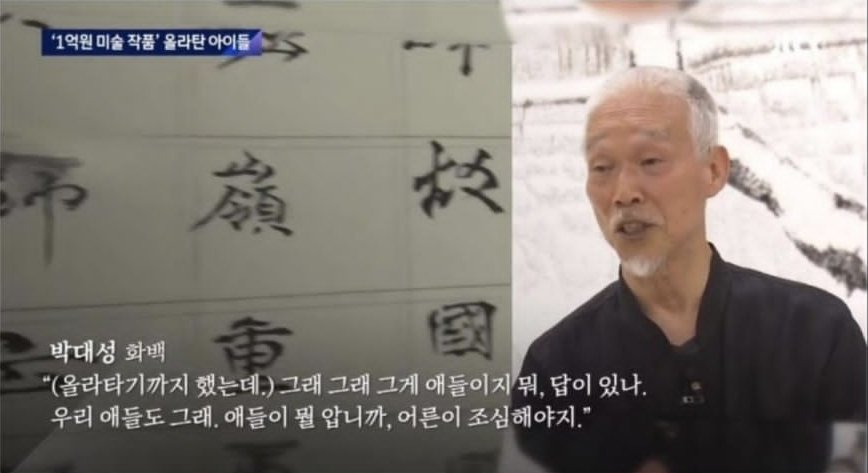 ‘1억원 미술 작품’ 올라탄 아이들
師 嶺 故
重 國
박대성 화백
“(올라타기까지 했는데.) 그래 그래 그게 애들이지 뭐, 답이 있나.
우리 애들도 그래. 애들이 뭘 압니까, 어른이 조심해야지.”